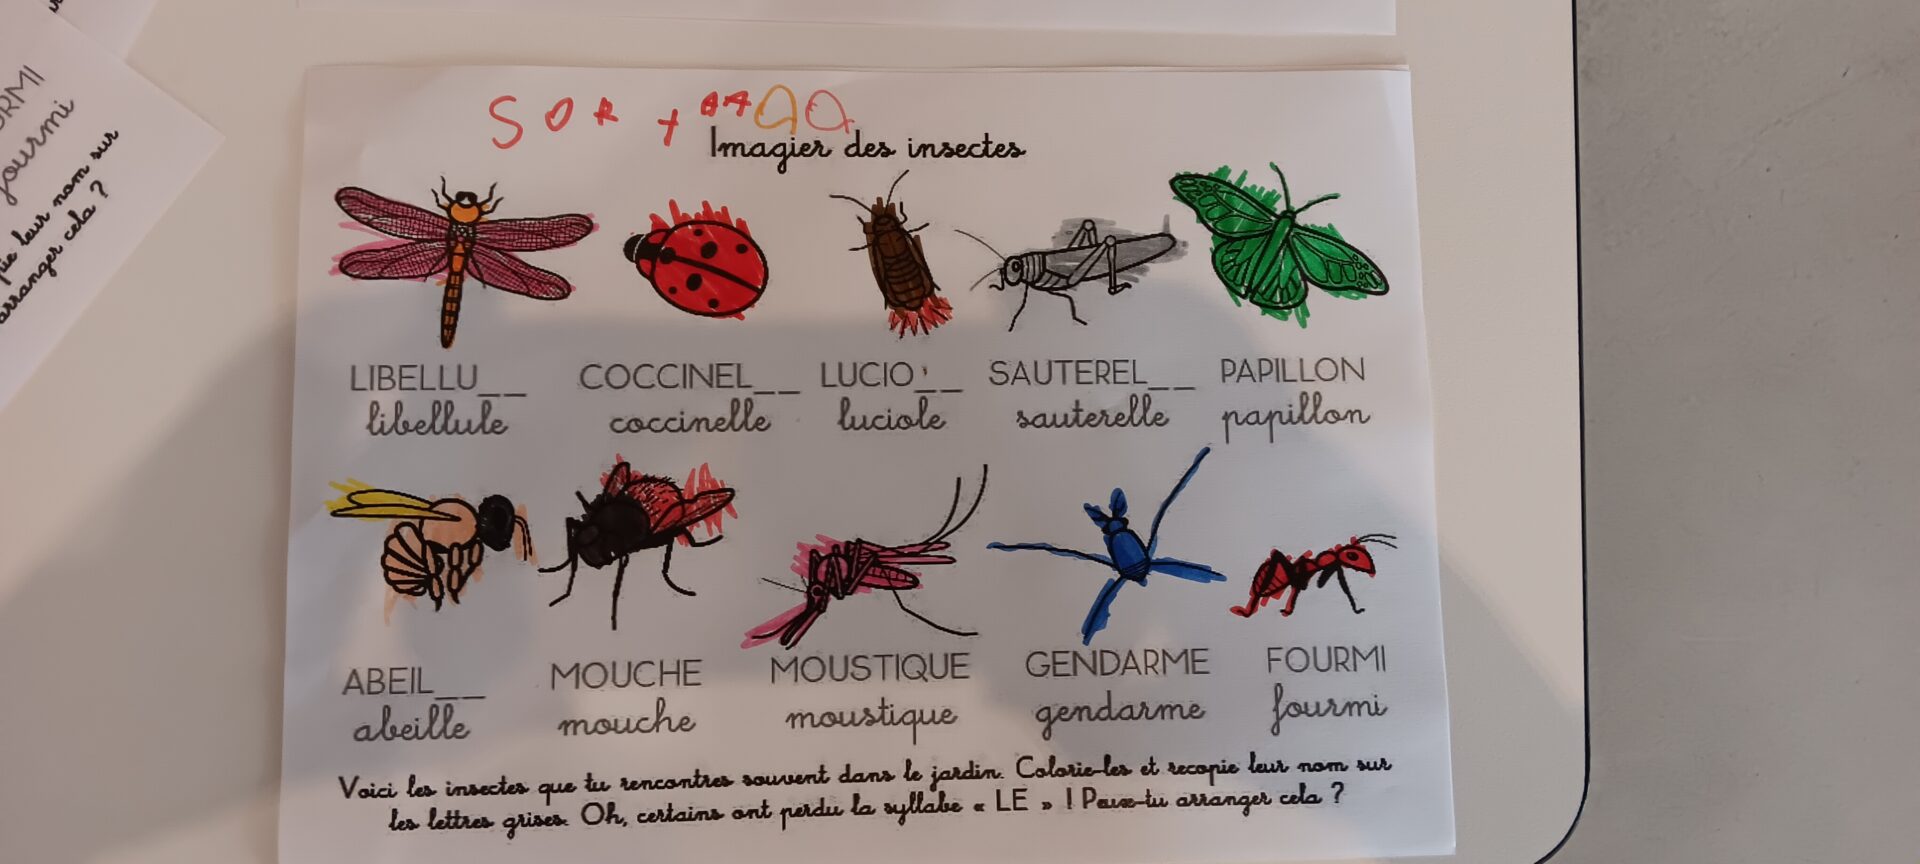 Imagier des insectes
LIBELLU__ COCCINEL__ LUCIO__ SAUTEREL__ PAPILLON
libellule coccinelle luciole sauterelle papillon
ABEIL__ MOUCHE MOUSTIQUE GENDARME FOURMI
abeille mouche moustique gendarme fourmi
Voici les insectes que tu rencontres souvent dans le jardin. Colorie-les et recopie leur nom sur
les lettres grises. Oh, certains ont perdu la syllabe « LE » ! Peux-tu arranger cela ?
fourmi
leur nom sur
arranger cela ?